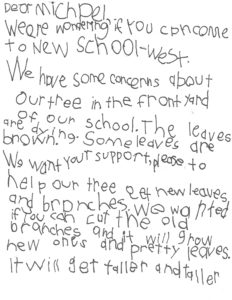 Dear Michael
We are wondering if you can come
to New SCHOOL-West.
We have some concerns about
Our tree in the front yard
of our school. The leaves
are dying. Some leaves are
brown.
We want your support, please to
help our tree get new leaves
and branches. We wanted
if you can cut the old
branches and it will grow
new ones and pretty leaves.
It will get taller and taller